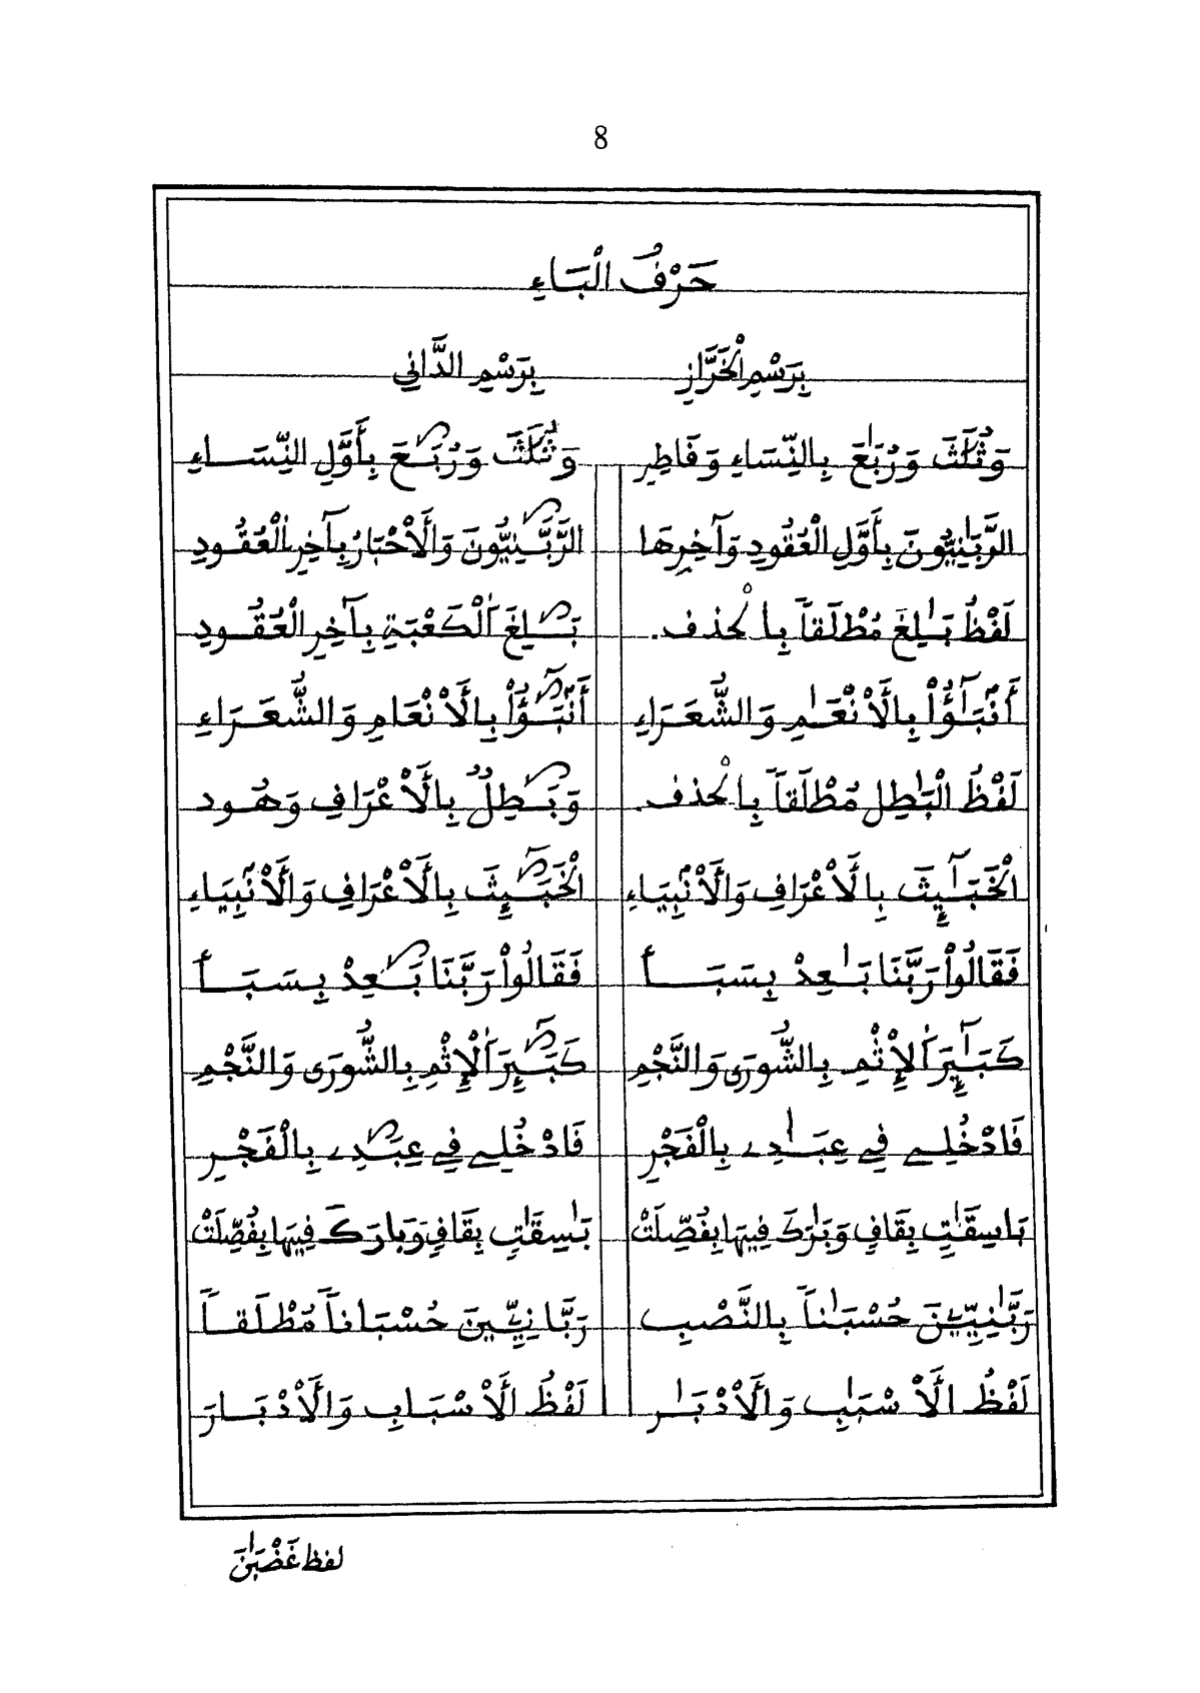 8
حَرْفُ الْبَاءِ
بِرَسْمِ الْخَرَّازِ بِرَسْمِ الدَّانِي
وَثُلَٰثَ وَرُبَٰعَ بِالنِّسَاءِ وَفَاطِرِ وَثُلَٰثَ وَرُبَٰعَ بِأَوَّلِ النِّسَاءِ
الرَّبَّٰنِيُّونَ بِأَوَّلِ الْعُقُودِ وَآخِرِهَا الرَّبَّٰنِيُّونَ وَالَاْحْبَارُ بِآخِرِ الْعُقُودِ
لَفْظُ بَٰلِغَ مُطْلَقاً بِالْحذف. بَٰلِغَ اَ۬لْكَعْبَةِ بِآخِرِ الْعُقُودِ
أَنۢبَٰٓؤُاْ بِالَاْنْعَٰمِ وَالشُّعَرَاءِ أَنۢبَٰٓؤُاْ بِالَاْنْعَامِ وَالشُّعَرَاءِ
لَفْظُ الْبَٰطِل مُطْلَقاً بِالْحذف. وَبَٰطِلٌ بِالَاْعْرَافِ وَهُود
الْخَبَٰٓئِثَ بِالَاْعْرَافِ وَالَاْنۢبِيَاءِ الْخَبَٰٓئِثَ بِالَاْعْرَافِ وَالَاْنۢبِيَاءِ
فَقَالُواْ رَبَّنَا بَٰعِدْ بِسَبَأ فَقَالُواْ رَبَّنَا بَٰعِدْ بِسَبَأ
كَبَٰٓئِرَ اَ۬لِاثْمِ بِالشُّورَى وَالنَّجْمِ كَبَٰٓئِرَ اَ۬لِاثْمِ بِالشُّورَى وَالنَّجْمِ
فَادْخُلِے فِے عِبَٰدِے بِالْفَجْرِ فَادْخُلِے فِے عِبَٰدِے بِالْفَجْرِ
بَاسِقَٰتٍ بِقَافِ وَبَٰرَكَ فِيهَا بِفُصِّلَتْ بَٰسِقَٰتٍ بِقَافِ وَبَارَكَ فِيهَا بِفُصِّلَتْ
رَبَّٰنِيِّينَ حُسْبَٰناً بِالنَّصْبِ رَبَّانِيِّينَ حُسْبَاناً مُطْلَقاً
لَفْظُ الَاْسْبَٰبِ وَالَاْدْبَٰرِ لَفْظُ الَاْسْبَابِ وَالَاْدْبَارَ
لفظ غَضْبَٰنَ